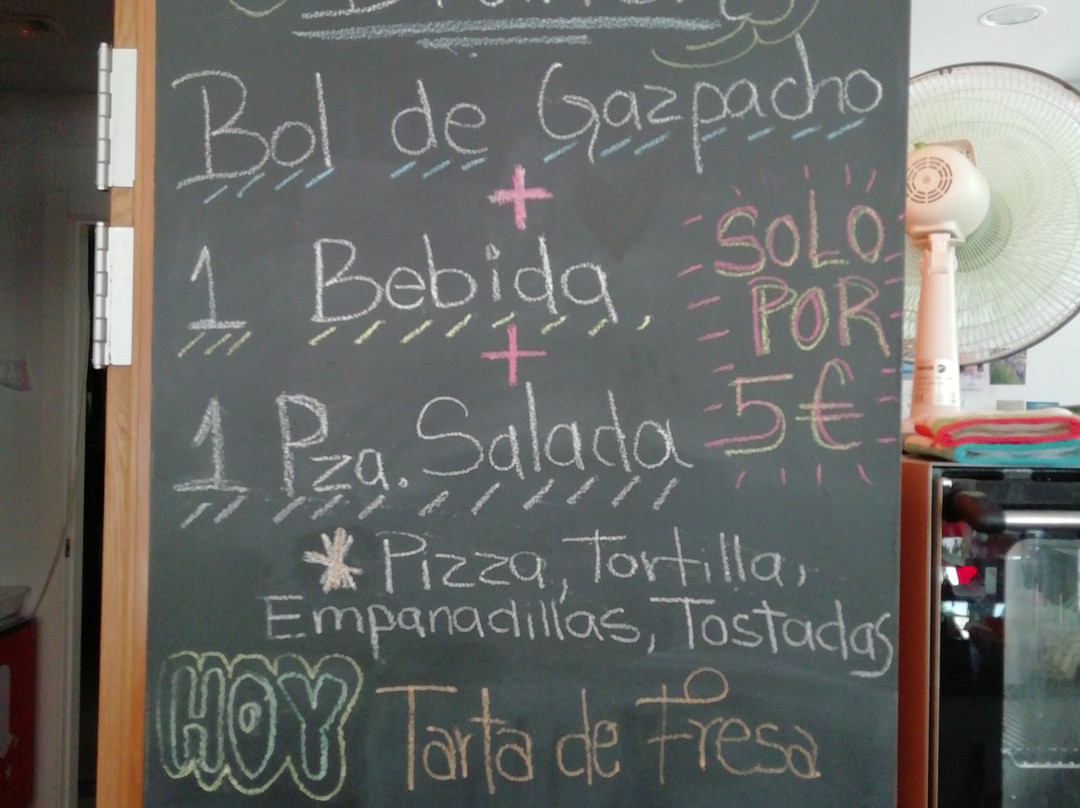 Bol de Gazpacho
+
1 Bebida,
+
1 Pza. Salada
SOLO
POR
5€
* Pizza, Tortilla,
Empanadillas, Tostadas
HOY Tarta de Fresa